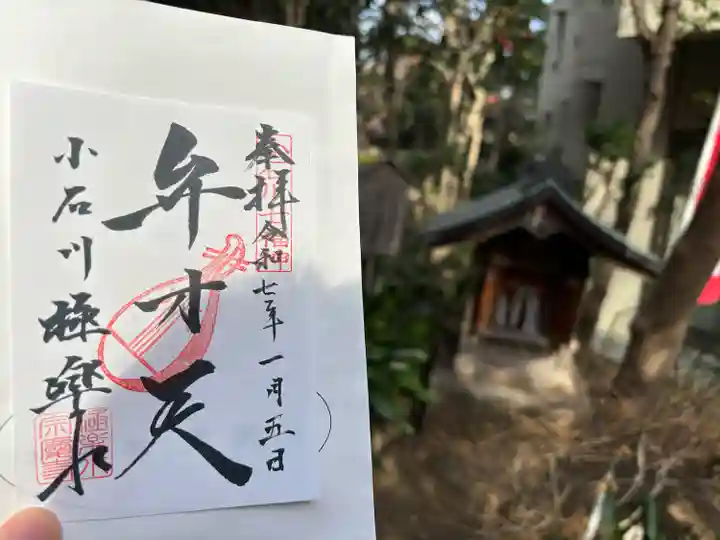 奉拝 令和七年一月五日
弁才天
小石川極楽水